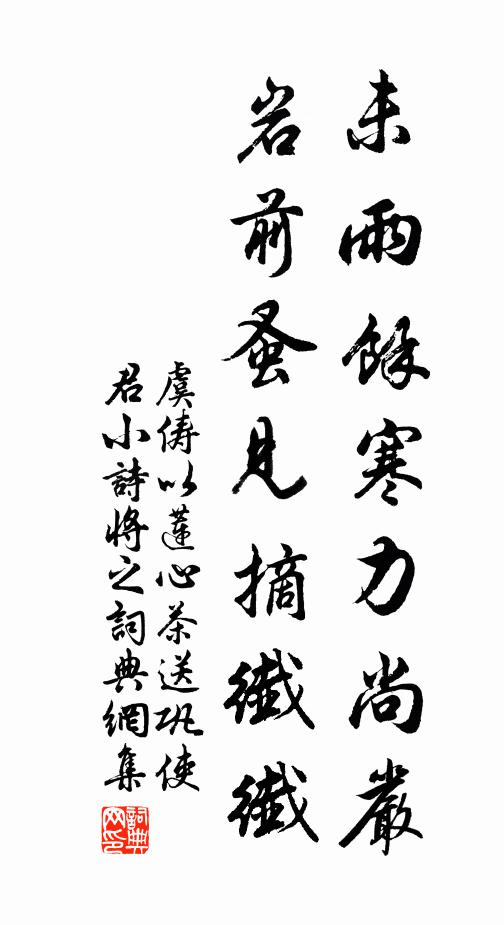 未雨餘寒力尚嚴
岩前蚤見摘纖纖
虞儔以蓮心茶送巩使
君小詩將之詞典網集
詞典網印